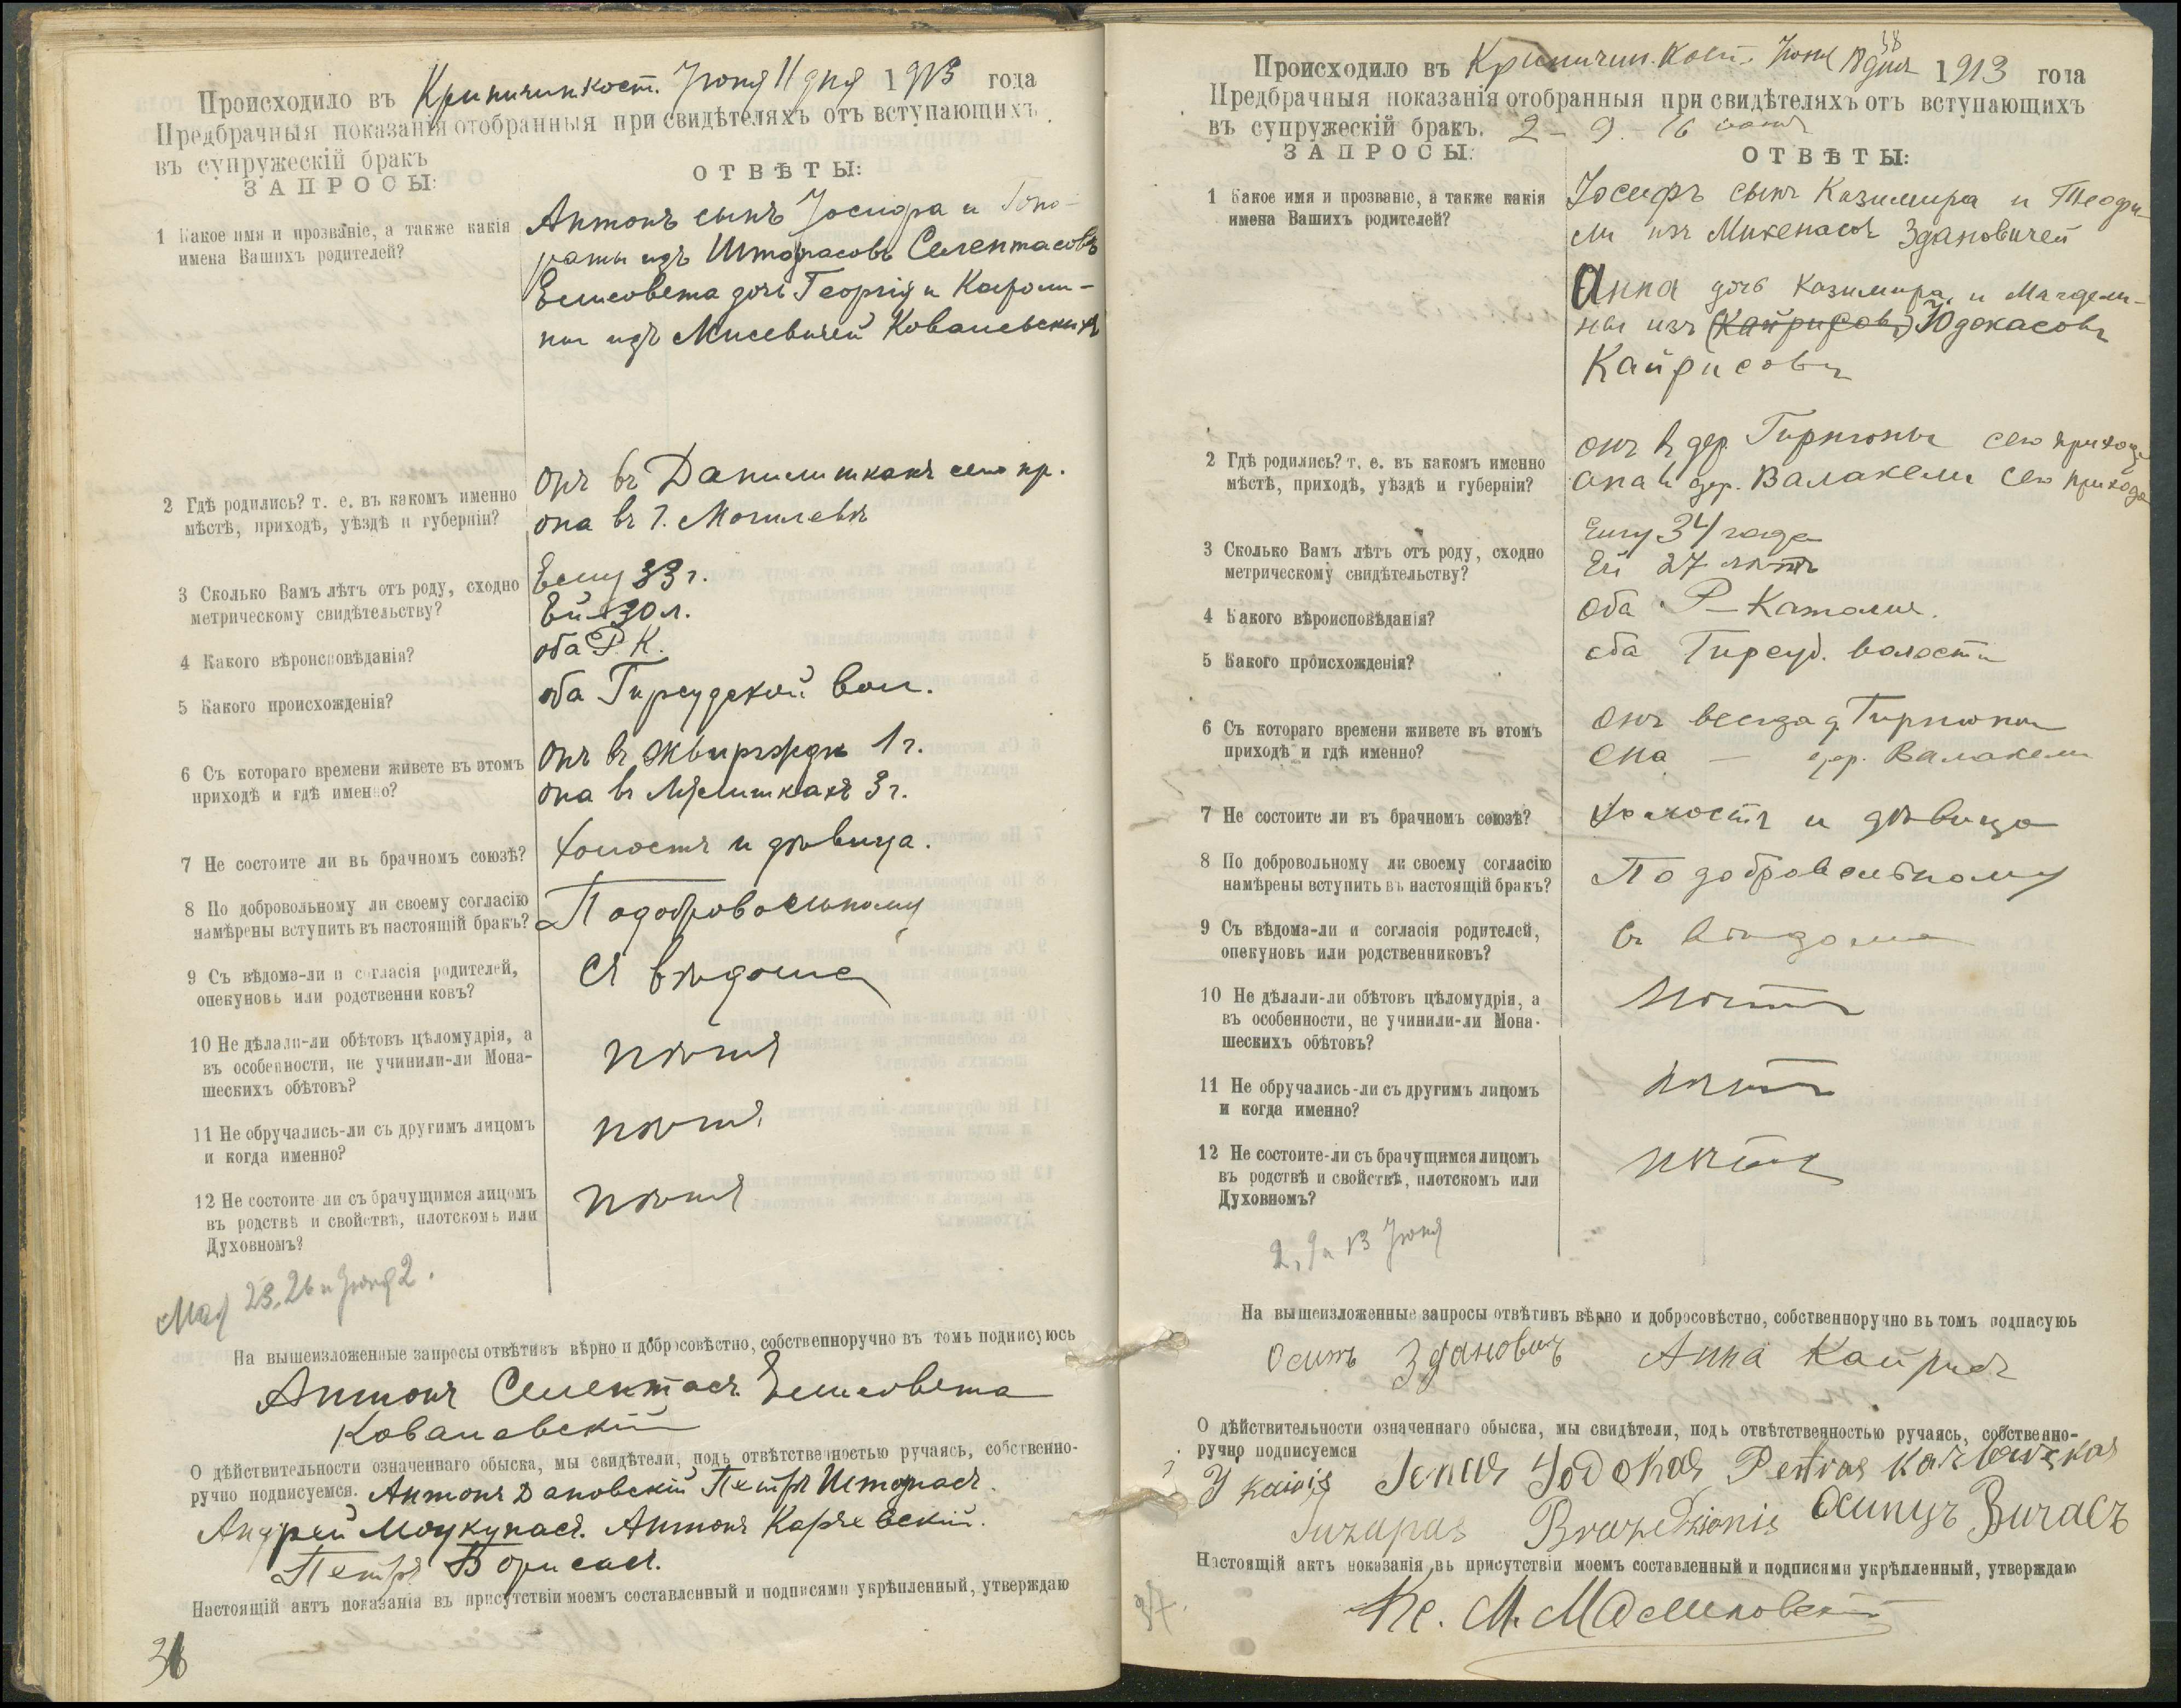 Происходило въ Криничин кост. Іюня 11 дня 1913 года
Предбрачныя показанія отобранныя при свидѣтеляхъ отъ вступающихъ
въ супружескій бракъ
ЗАПРОСЫ:
ОТВѢТЫ:
1 Какое имя и прозваніе, а также какія
имена Вашихъ родителей?
Антонъ сынъ Іосифа и Гоно-
раты изъ Штофасовъ Селентасовъ
Елисовета дочь Георгія и Кароли-
ны изъ Мисевичей Ковалевскихъ
2 Гдѣ родились? т. е. въ какомъ именно
мѣстѣ, приходѣ, уѣздѣ и губерніи?
онъ въ Данилишкахъ сего пр.
она въ г. Могилевѣ
3 Сколько Вамъ лѣтъ отъ роду, сходно
метрическому свидѣтельству?
Ему 33 г.
Ей 30 л.
4 Какого вѣроисповѣданія?
оба Р. К.
5 Какого происхожденія?
оба Гирсудской вол.
6 Съ котораго времени живете въ этомъ
приходѣ и гдѣ именно?
онъ въ Жвиргжде 1 г.
она въ 3 г.
7 Не состоите ли въ брачномъ союзѣ?
холостъ и дѣвица.
8 По добровольному ли своему согласію
намѣрены вступить въ настоящій бракъ?
По добровольному
9 Съ вѣдома-ли и согласія родителей,
опекуновъ или родственни ковъ?
съ вѣдома
10 Не дѣлали-ли обѣтовъ цѣломудрія, а
въ особенности, не учинили-ли Мона-
шескихъ обѣтовъ?
нѣтъ
11 Не обручались-ли съ другимъ лицомъ
и когда именно?
нѣтъ
12 Не состоите ли съ брачущимся лицомъ
въ родствѣ и свойствѣ, плотскомъ или
Духовномъ?
нѣтъ
Мая 23, 26 и Іюня 2.
На вышеизложенные запросы отвѣтивъ вѣрно и добросовѣстно, собственноручно въ томъ подписуюсь
Антонъ Селентасъ Елисовета
Ковалевскій
О дѣйствительности означеннаго обыска, мы свидѣтели, подъ отвѣтственностью ручаясь, собственно-
ручно подписуемся. Антонъ Дановскій Петръ Штофасъ.
Андрей Моцкунасъ. Антонъ Карчевскій.
Петръ Борисасъ.
Настоящій актъ показанія въ присутствіи моемъ составленный и подписями укрѣпленный, утверждаю
38
Происходило въ Криничин. Кост. Іюня 18 дня 1913 года
Предбрачныя показанія отобранныя при свидѣтеляхъ отъ вступающихъ
въ супружескій бракъ. 2 - 9 - 16 юня
ЗАПРОСЫ:
ОТВѢТЫ:
1 Какое имя и прозваніе, а также какія
имена Вашихъ родителей?
Іосифъ сынъ Казимира и Теофи-
ли изъ Микенасовъ Здановичей
Анна дочь Казимира и Магдели-
ны изъ (Кайрисовъ) Юдокасовъ
Кайрисовъ
2 Гдѣ родились? т. е. въ какомъ именно
мѣстѣ, приходѣ, уѣздѣ и губерніи?
онъ в дер. Гирнюны сего прихода
она в дер. Валакели сего прихода
3 Сколько Вамъ лѣтъ отъ роду, сходно
метрическому свидѣтельству?
Ему 34 года
Ей 27 лѣтъ
4 Какого вѣроисповѣданія?
оба Р-Католик.
5 Какого происхожденія?
оба Гирсуд. волости
6 Съ котораго времени живете въ этомъ
приходѣ и гдѣ именно?
онъ всегда д. Гирнюны
она — дер. Валакели
7 Не состоите ли въ брачномъ союзѣ?
Холостъ и дѣвица
8 По добровольному ли своему согласію
намѣрены вступить въ настоящій бракъ?
По добровольному
9 Съ вѣдома-ли и согласія родителей,
опекуновъ или родственниковъ?
съ вѣдома
10 Не дѣлали-ли обѣтовъ цѣломудрія, а
въ особенности, не учинили-ли Мона-
шескихъ обѣтовъ?
нѣтъ
11 Не обручались-ли съ другимъ лицомъ
и когда именно?
нѣтъ
12 Не состоите-ли съ брачущимся лицомъ
въ родствѣ и свойствѣ, плотскомъ или
Духовномъ?
нѣтъ
2, 9 и 13 Іюня
На вышеизложенные запросы отвѣтивъ вѣрно и добросовѣстно, собственноручно въ томъ подписуюь
Осипъ Здановичъ Анна Кайрисъ
О дѣйствительности означеннаго обыска, мы свидѣтели, подь отвѣтственностью ручаясь, собственно-
ручно подписуемся
Juzapas Осипъ
Настоящій актъ показанія въ присутствіи моемъ составленный и подписями укрѣпленный, утверждаю
Кс. М.